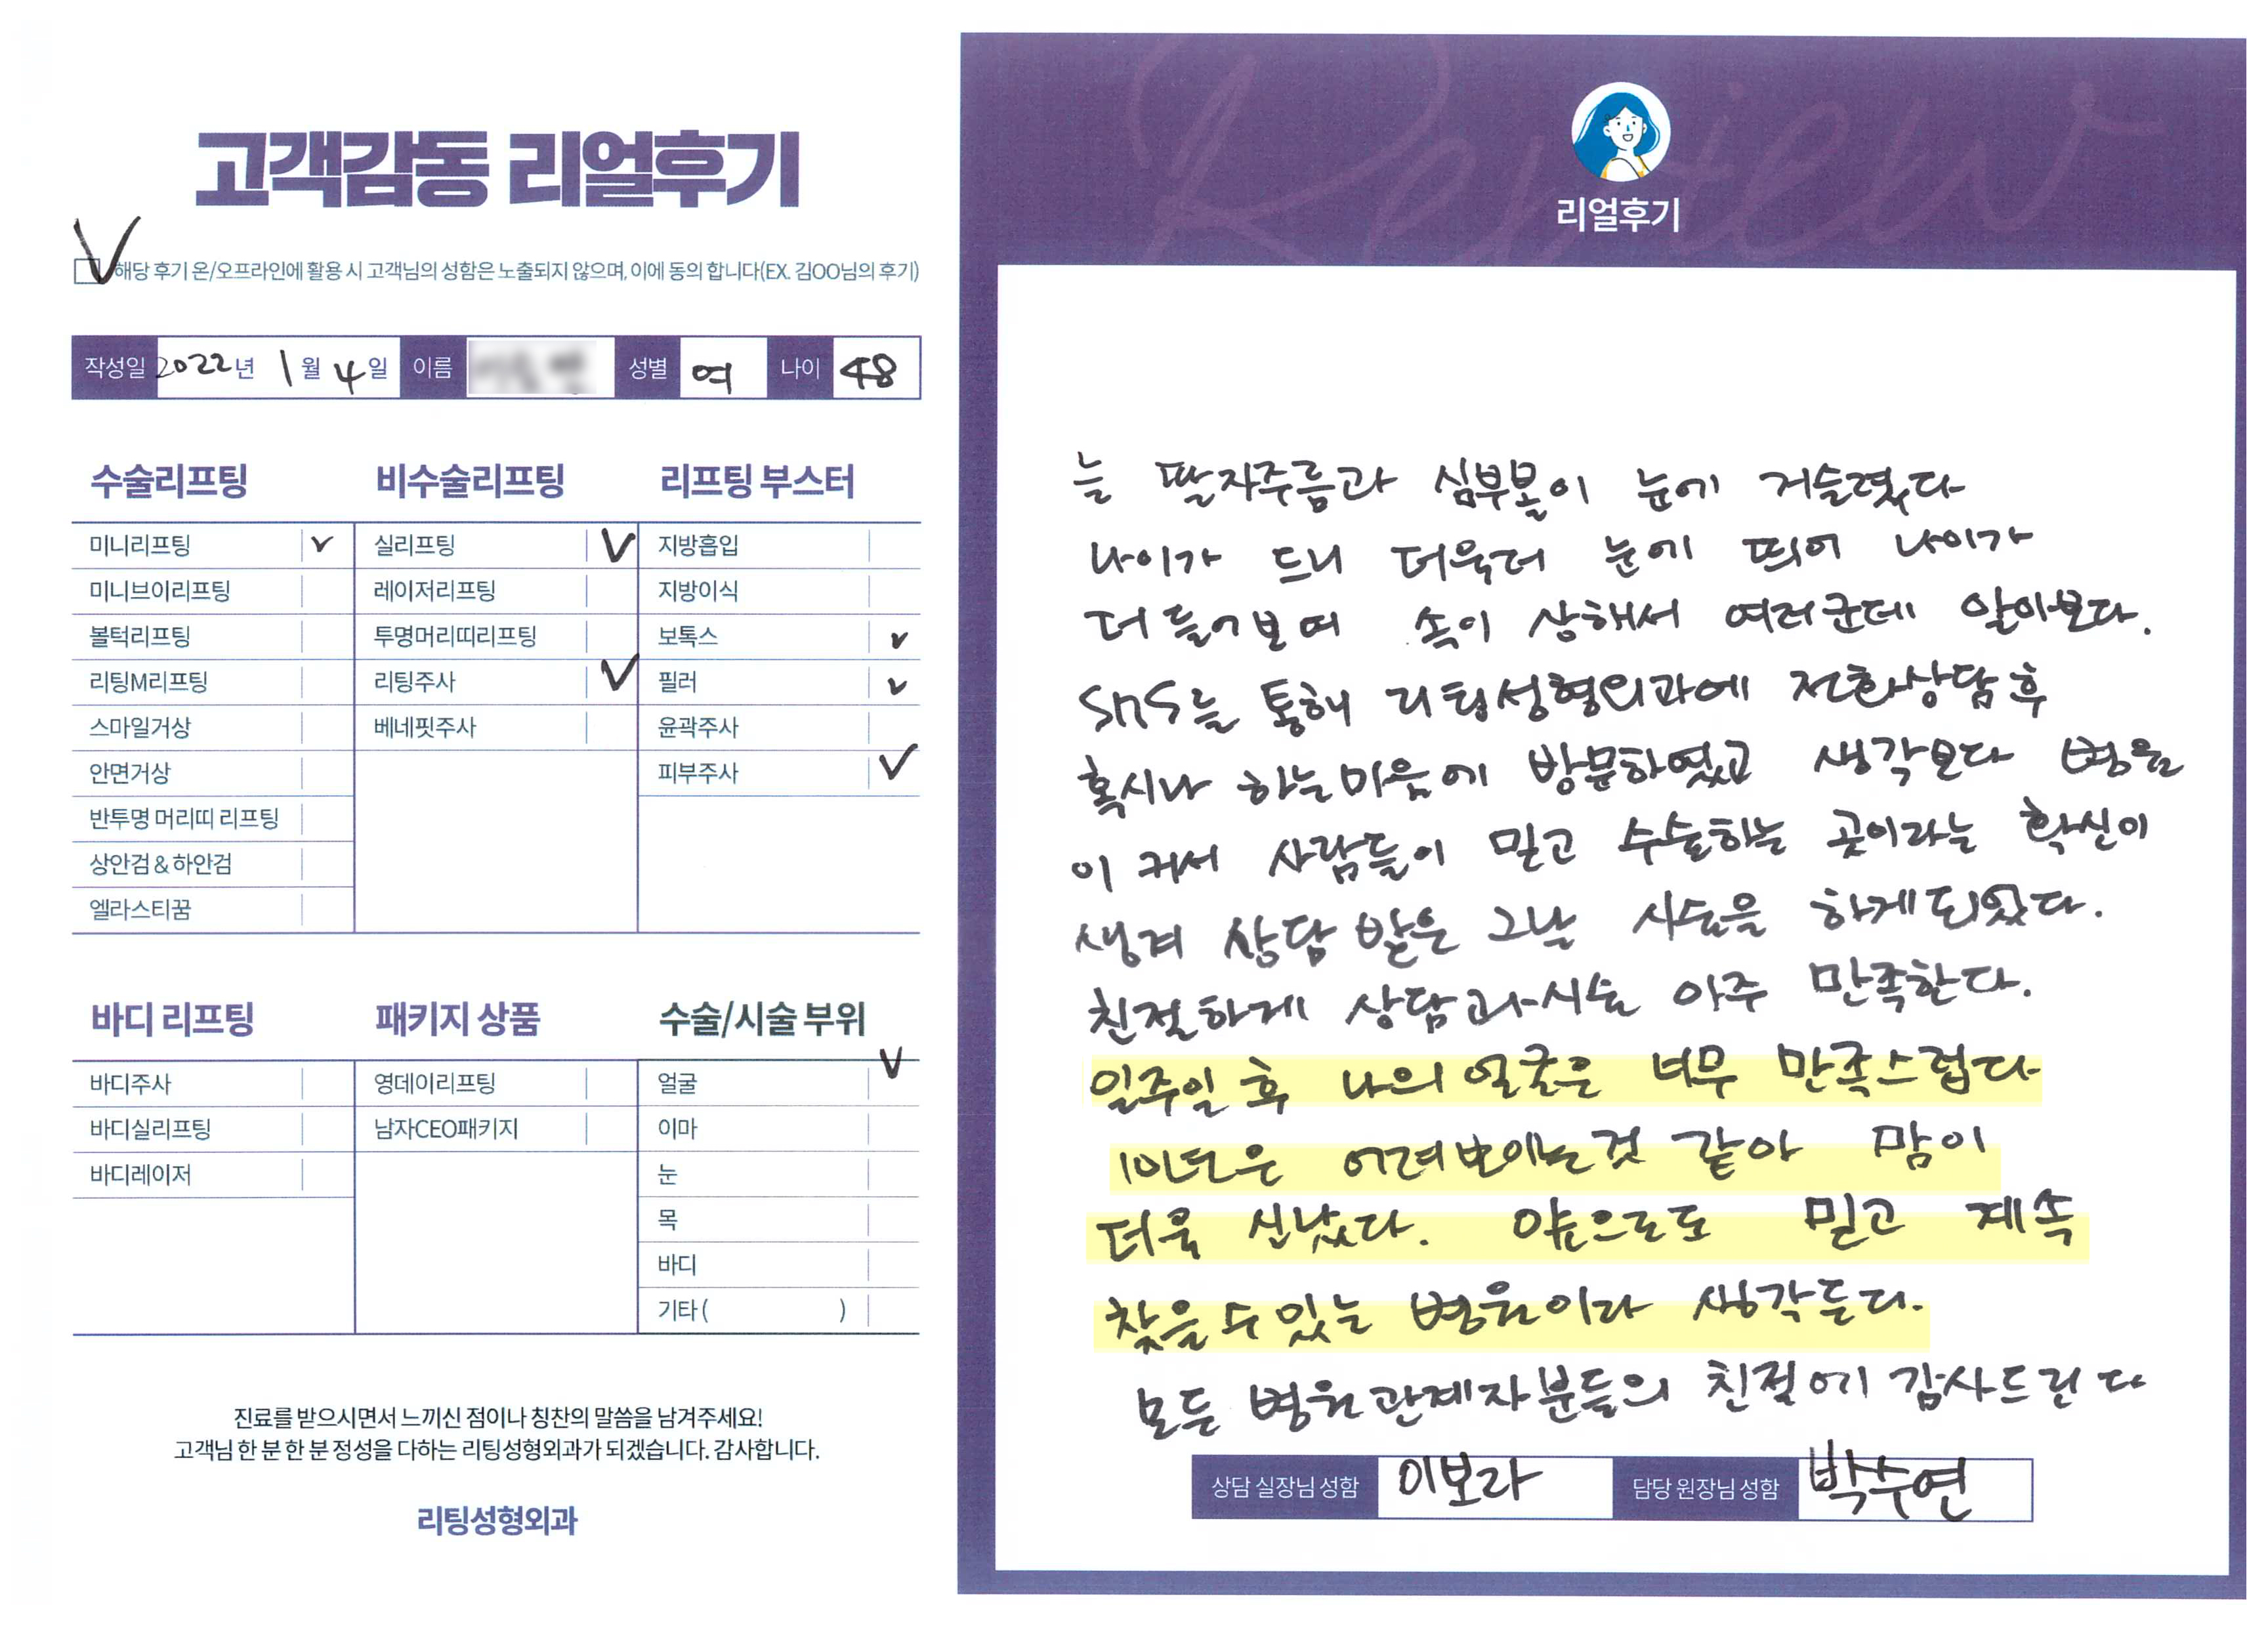 고객감동 리얼후기
해당 후기 온/오프라인에 활용 시 고객님의 성함은 노출되지 않으며, 이에 동의 합니다(EX. 김OO님의 후기)
작성일 2022년 1월 4일 이름 성별 여 나이 48
수술리프팅
미니리프팅
미니브이리프팅
볼턱리프팅
리팅M리프팅
스마일거상
안면거상
반투명 머리띠 리프팅
상안검 & 하안검
엘라스티꿈
비수술리프팅
실리프팅
레이저리프팅
투명머리띠리프팅
리팅주사
베네핏주사
리프팅 부스터
지방흡입
지방이식
보톡스
필러
윤곽주사
피부주사
바디 리프팅
바디주사
바디실리프팅
바디레이저
패키지 상품
영데이리프팅
남자CEO패키지
수술/시술 부위
얼굴
이마
눈
목
바디
기타 ( )
진료를 받으시면서 느끼신 점이나 칭찬의 말씀을 남겨주세요!
고객님 한 분 한 분 정성을 다하는 리팅성형외과가 되겠습니다. 감사합니다.
리팅성형외과
Review
리얼후기
늘 팔자주름과 심부볼이 눈에 거슬렸다
나이가 드니 더욱더 눈에 띄어 나이가
더 들어보여 속이 상해서 여러군데 알아보다.
SNS를 통해 리팅성형외과에 전화상담 후
혹시나 하는 마음에 방문하였고 생각보다 병원
이 커서 사람들이 믿고 수술하는 곳이라는 확신이
생겨 상담 받은 그날 시술을 하게 되었다.
친절하게 상담과 시술 아주 만족한다.
일주일 후 나의 얼굴은 너무 만족스럽다
10년은 어려보이는것 같아 맘이
더욱 신났다. 앞으로도 믿고 계속
찾을 수 있는 병원이라 생각든다.
모든 병원 관계자분들의 친절에 감사드린다
상담 실장님 성함 이보라 담당 원장님 성함 박수연